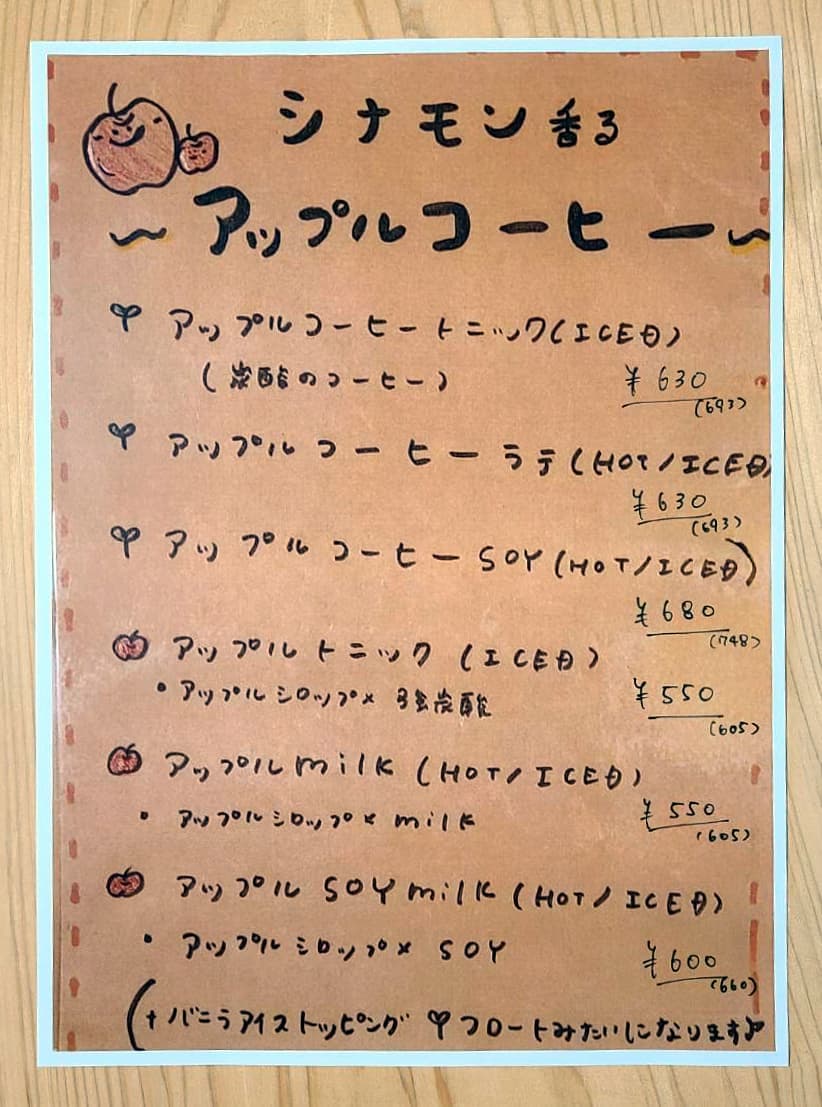 シナモン香る
~アップルコーヒー~
アップルコーヒートニック(ICED)
(炭酸のコーヒー)
¥630
(693)
アップルコーヒーラテ(HOT/ICED)
¥630
(693)
アップルコーヒーSOY(HOT/ICED)
¥680
(748)
アップルトニック(ICED)
・アップルシロップ×強炭酸
¥550
(605)
アップルmilk(HOT/ICED)
・アップルシロップ×milk
¥550
(605)
アップルSOYmilk(HOT/ICED)
・アップルシロップ×SOY
¥600
(660)
(+バニラアイストッピング フロートみたいになります♪